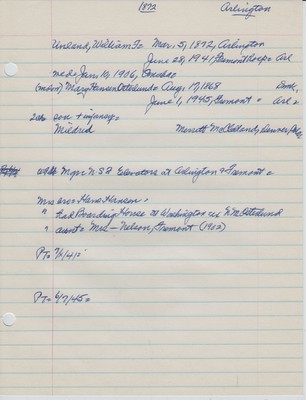 1872 Arlington
Uneland, William Fo Mar. 5, 1872, Arlington
June 28, 1941, Fremont Hosp= Arl
md= Jan. 10, 1906, Omaha
Mary Hansen Osterlund= Aug. 17, 1868
June 1, 1945, Fremont = Arl=
2ch= son + infancy=
Mildred Merritt McClelland, Denver,
Mgr= NSR Elevators at Arlington & Fremont=
Mrs was Hans Hansen=
" had Boarding House at Washington
" aunt= Mrs — Nelson, Fremont (1902)
PT= 7/1/41=
PT= 6/7/45=